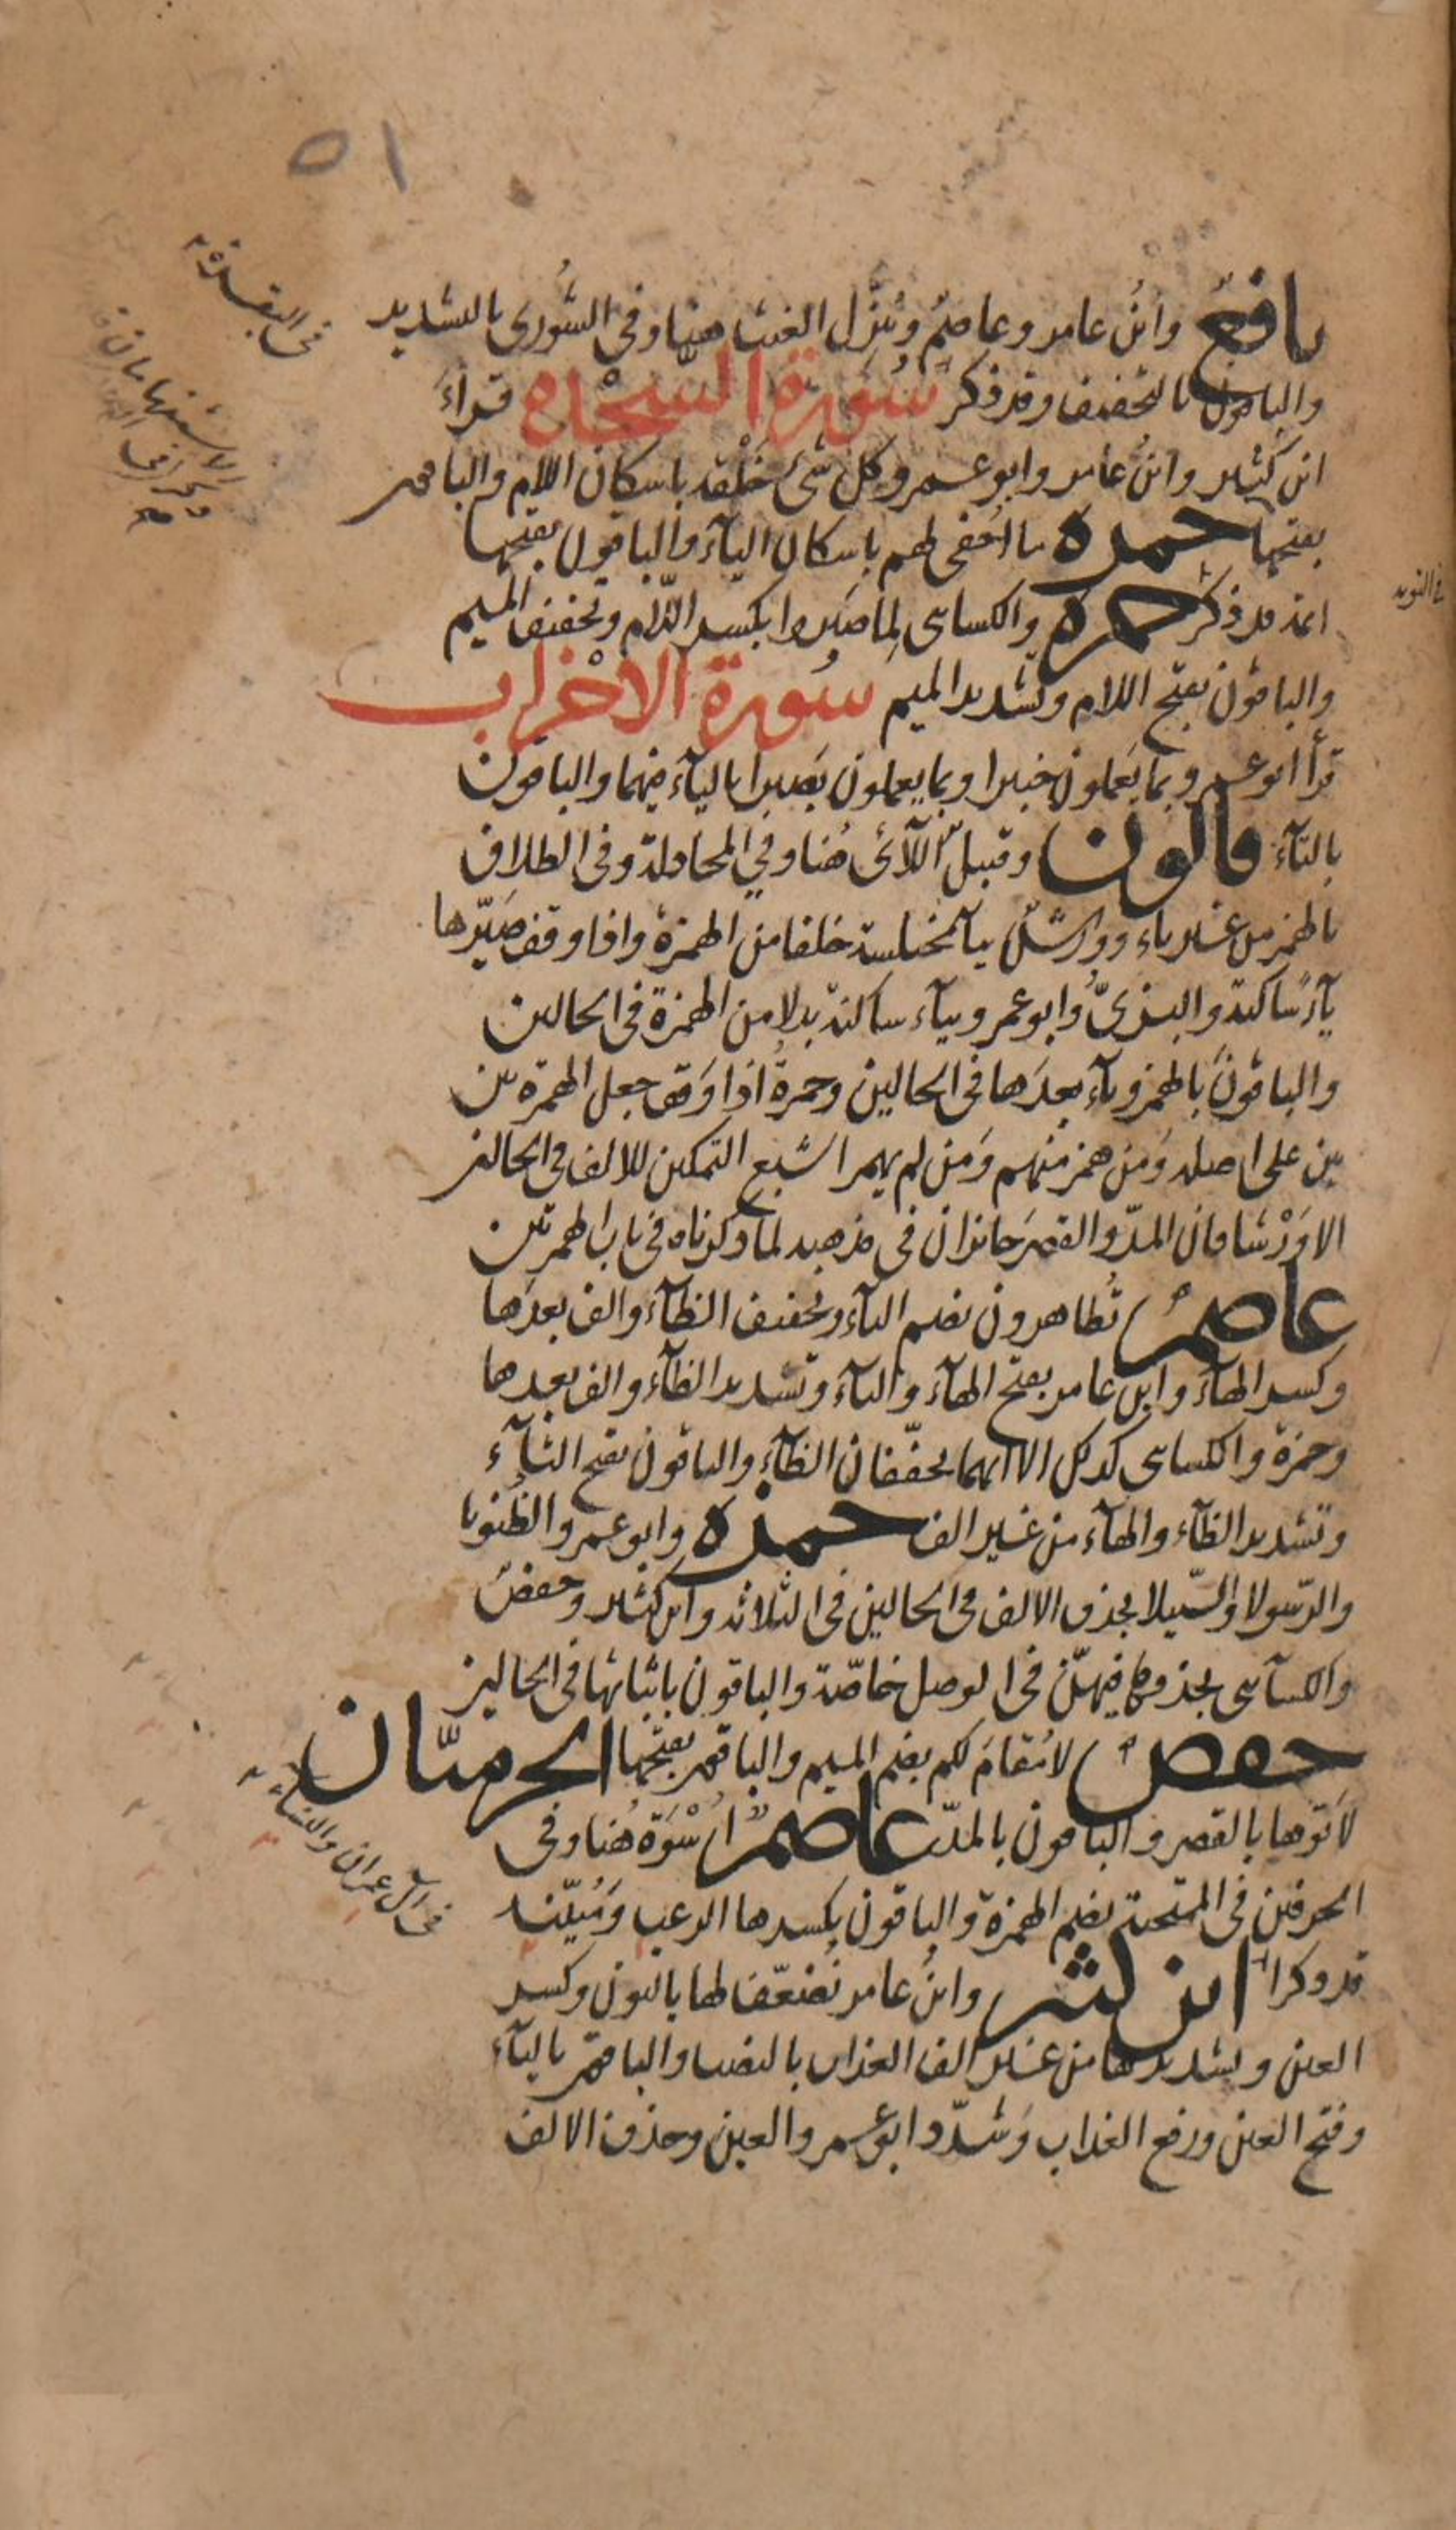 ٥١
نافعٌ وابنُ عامر وعاصمٌ وينزّل الغيث هنا وفى الشُورى بالتشديد
فى البقرة
والباقون بالتخفيف وقد ذكر سُورة السّجْدة قراءَ
ابن كثير وابنُ عامر وابو عمرو كل شئ خَلْقه باسكان اللام والباقون
بفتحها حمزة ما اُخفى لهم باسكان الياۤء والباقون بفتحها
ائمة قد ذكر حمزة والكسائى لِما صَبَروا بكسر اللّام وتخفيف الميم
فى التوبه
والباقون بفتح اللام وتشديد الميم سُورة الاحْزاب
قرأ ابو عمرو بما يَعملون خبيرا وبما يعملون بَصيرا بالياۤء فيهما والباقون
بالتاۤء قالون وقنبلٌ اللّائ هُنا وفي المجادلة وفى الطلاق
بالهمز من غير ياء وورشٌ بياۤء مختلسة خلفا من الهمزة واذا وقف صَيّرها
ياۤءً ساكنة والبزىُّ وابو عمرو بياۤء ساكنة بدلا من الهمزة فى الحالين
والباقونَ بالهمز وياۤء بعدَها فى الحالين وحمزةُ اذا وَقف جعل الهمزة بين
بين على اصله وَمن همز منهم وَمن لم يهمز اشبع التمكين للالف فى الحالين
الا وَرْشا فان المدّ والقصرَ جائزان فى مذهبه لما ذكرناه فى باب الهمزتين
عاصمٌ تُظاهرون بضم التاۤء وتخفيف الظاۤء والف بعدَها
وكسر الهاۤء وابن عامر بفتح الهاۤء والتاۤء وتشديد الظاۤء والف بعدها
وحمزة والكسائى كذلك الا انهما يخفّفان الظاۤء والباقون بفتح التاۤء
وتشديد الظاۤء والهاۤء من غير الف حمزة وابو عمرو الظُنونا
والرّسولا والسّبيلا بحذف الالف فى الحالين فى الثلاثة وابن كثير وحفصٌ
والكساۤئى بحذفها فيهنّ فى الوصل خاصّة والباقون باثباتها فى الحالين
حفصٌ لا مُقامَ لكم بضم الميم والباقون بفتحها الحرميّان
لاَتوها بالقصر والباقون بالمدّ عاصمٌ اُسْوَة هُنا وفى
الحرفين فى الممتحنة بضم الهمزة والباقون بكسرها الرعب ومُبيّنه
فى آل عمران والنساء
قد ذكرا ابن كثير وابنُ عامر نُضعّف لها بالنون وكسر
العين وتشديدها من غير الف العذاب بالنصب والباقون بالياۤء
وفتح العين ورفع العذاب وَشدّد ابو عمرو العين وحذف الالف